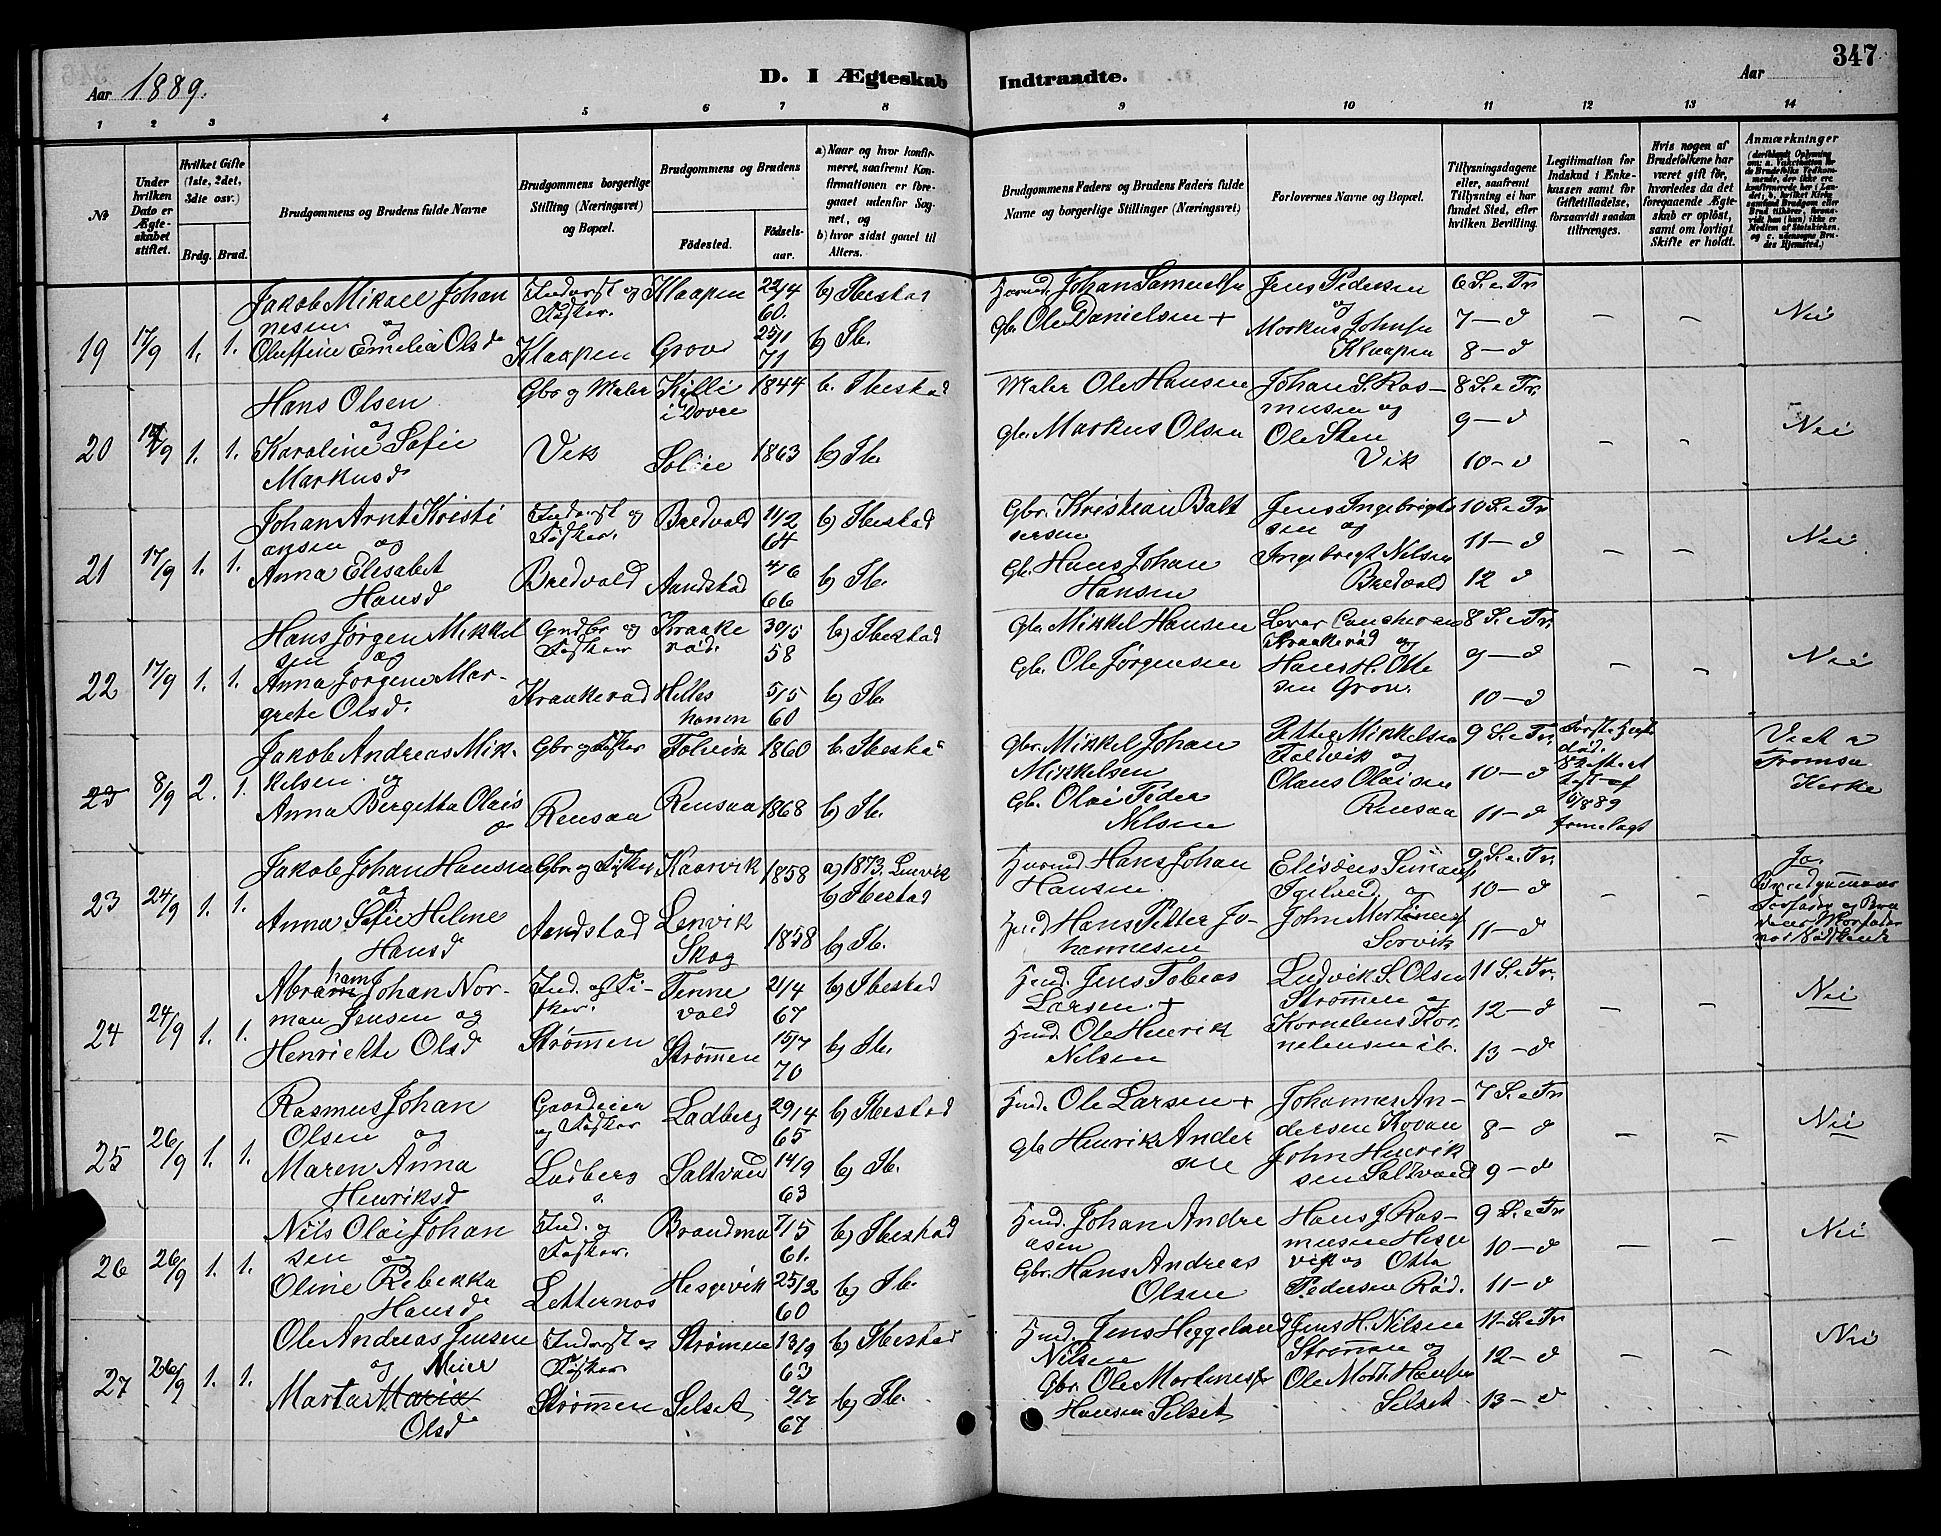 347
Aar 1889.
D. I Ægteskab Indtraadte.
Aar
1 2 3 4 5 6 7 8 9 10 11 12 13 14
№
Under hvilken Dato er Ægteskabet stiftet.
Hvilket Gifte (1ste, 2det, 3die osv.)
Brdg. Brud.
Brudgommens og Brudens fulde Navne
Brudgommens borgerlige Stilling (Næringsvei) og Bopæl.
Brudgommens og Brudens
Fødested.
Fødselsaar.
a) Naar og hvor konfirmeret, saafremt Konfirmationen er foregaaet udenfor Sognet, og
b) hvor sidst gaaet til Alters.
Brudgommens Faders og Brudens Faders fulde Navne og borgerlige Stillinger (Næringsvei)
Forlovernes Navne og Bopæl.
Tillysningsdagene eller, saafremt Tillysning ei har fundet Sted, efter hvilken Bevilling.
Legitimation for Indskud i Enkekassen samt for Giftetilladelse, forsaavidt saadan tiltrænges.
Hvis nogen af Brudefolkene har været gift før, hvorledes da det foregaaende Ægteskab er opløst, samt om lovligt Skifte er holdt.
Anmærkninger
19 17/9 1. 1.
Jakob Mikael Johannesen og
Oluffine Emelia Olsd
Indorst og Fisker. Klaapen
Klaapen 22/4 60.
Grov 25/1 71
b) Ibestad
b) Ib.
Johan Samuelsn
Gbr. Ole Danielsen +
Jens Pedersen og
Markus Johnsn Klaapen
6 S. e Tr.
7 - d
8 - d
– – Nei
20 17/9 1. 1.
Hans Olsen og
Karoline Sofie Markusd
Gbr og Maler Vik
Killi i Dovre 1844
Solli 1863
b. Ibestad
b) Ib.
Maler Ole Hansen
Gbr. Markus Olsen
Johan S. Rasmusen og
Ole Sten Vik
8 S. e Tr.
9 - d
10 - d
– – Nei
21 17/9 1. 1.
Johan Arnt Kristiansen og
Anna Elisabet Hansd
Indorst og Fisker. Bredvold
Bredvold 11/2 64
Aandstad 4/6 66
b) Ibestad
b) Ib.
Gbr. Kristian Baltsersen
Gb. Hans Johan Hansen
Jens Ingebrigtsen og
Ingebregt Nilsen Bredvold
10 S. e Tr
11 - d
12 d
– – Nei
22 17/9 1. 1.
Hans Jørgen Mikkelsen og
Anna Jørgine Margrete Olsd.
Fisker Kraakerød
Kraakerød. 30/5 58
Hilleshamn 5/5 60
b) Ibestad
b) Ib.
Gbr Mikkel Hansen
Gb. Ole Jørgensen
Kraakerød og
Hans H. Ottesen Grov.
8 S. e Tr.
9 - d
10 - d
– – Nei
23 8/9 2. 1.
Jakob Andreas Mikkelsen og
Anna Bergetta Olaisd
Gbr og Fisker Rensaa
Folvik 1860
Rensaa 1868
b. Ibesta
b) Ib.
Gbr. Mikkel Johan Mikkelsen
Gb. Olai Peder Nilsen
Petter Mikkelsen Foldvik og
Olaus Olaisen Rensaa
9 S. e Tr.
10 - d
11 - d
Viet i Tromsø Kirke
23 24/9 1. 1.
Jakob Johan Hansen og
Anna Sofie Heline Hansd
Gbr. og Fisker Aandstad
Kaarvik 1858
Lenvik Skog 1858
a) 1873. Lenvik
b) Ibestad
b) Ib.
Hans Johan Hansen.
Hans Petter Johannesen
Elisæus Simons og
John Mortensen Sorvik
9 S. e Tr.
10 - d
11 - d
Ja.
24 24/9 1. 1.
Abraham Johan Norman Jensen og
Henriette Olsd
Ind. og Fisker. Strømmen
Tennevold 21/4 67
Strømmen 15/7 70
b) Ibestad
b) Ib.
Jens Tobias Larsen. +
Ole Henrik Nilsen
Ludvik S. Olsen Strømmen og
Kornelius Kornelensen ib.
11 S. e Tr.
12 - d
13 - d
– – Nei
25 26/9 1. 1.
Rasmus Johan Olsen og
Maren Anna Henriksd
og Fisker Ladberg
Ladberg 29/4 65
Saltvand 14/9 63
b) Ibestad
b) Ib.
Ole Larsen +
Gb Henrik Andersen
Johannes Andersen Rovan
John Henriksen Saltvand
7 S. e Tr
8 - d
9 - d
– – Nei
26 26/9 1. 1.
Nils Olai Johansen og
Oline Rebekka Hansd
Ind. og Fisker. Letternos
Brandmo 7/5 61.
Hesgevik 25/2 60
b) Ibestad
b) Ib.
Johan Andreasen
Gbr. Hans Andreas Olsen
Hans J. Rasmusen og Otto
Pedersen Rød.
9 S. e Tr
10 - d
11 - d
– – Nei
27 26/9 1. 1.
Ole Andreas Jensen og
Marta Maria Olsd
Indorst og Fisker Strømmen
Strømen 13/9 63
Selset 9/7 67
b) Ibestad
b) Ib.
Jens Heggelund Nilsen
Gbr. Ole Martines Hansen Selset
Jens H. Nilsen Strømen og
Ole Mort. Hansen Selset
11 S. e Tr
12 - d
13 - d
– – Nei